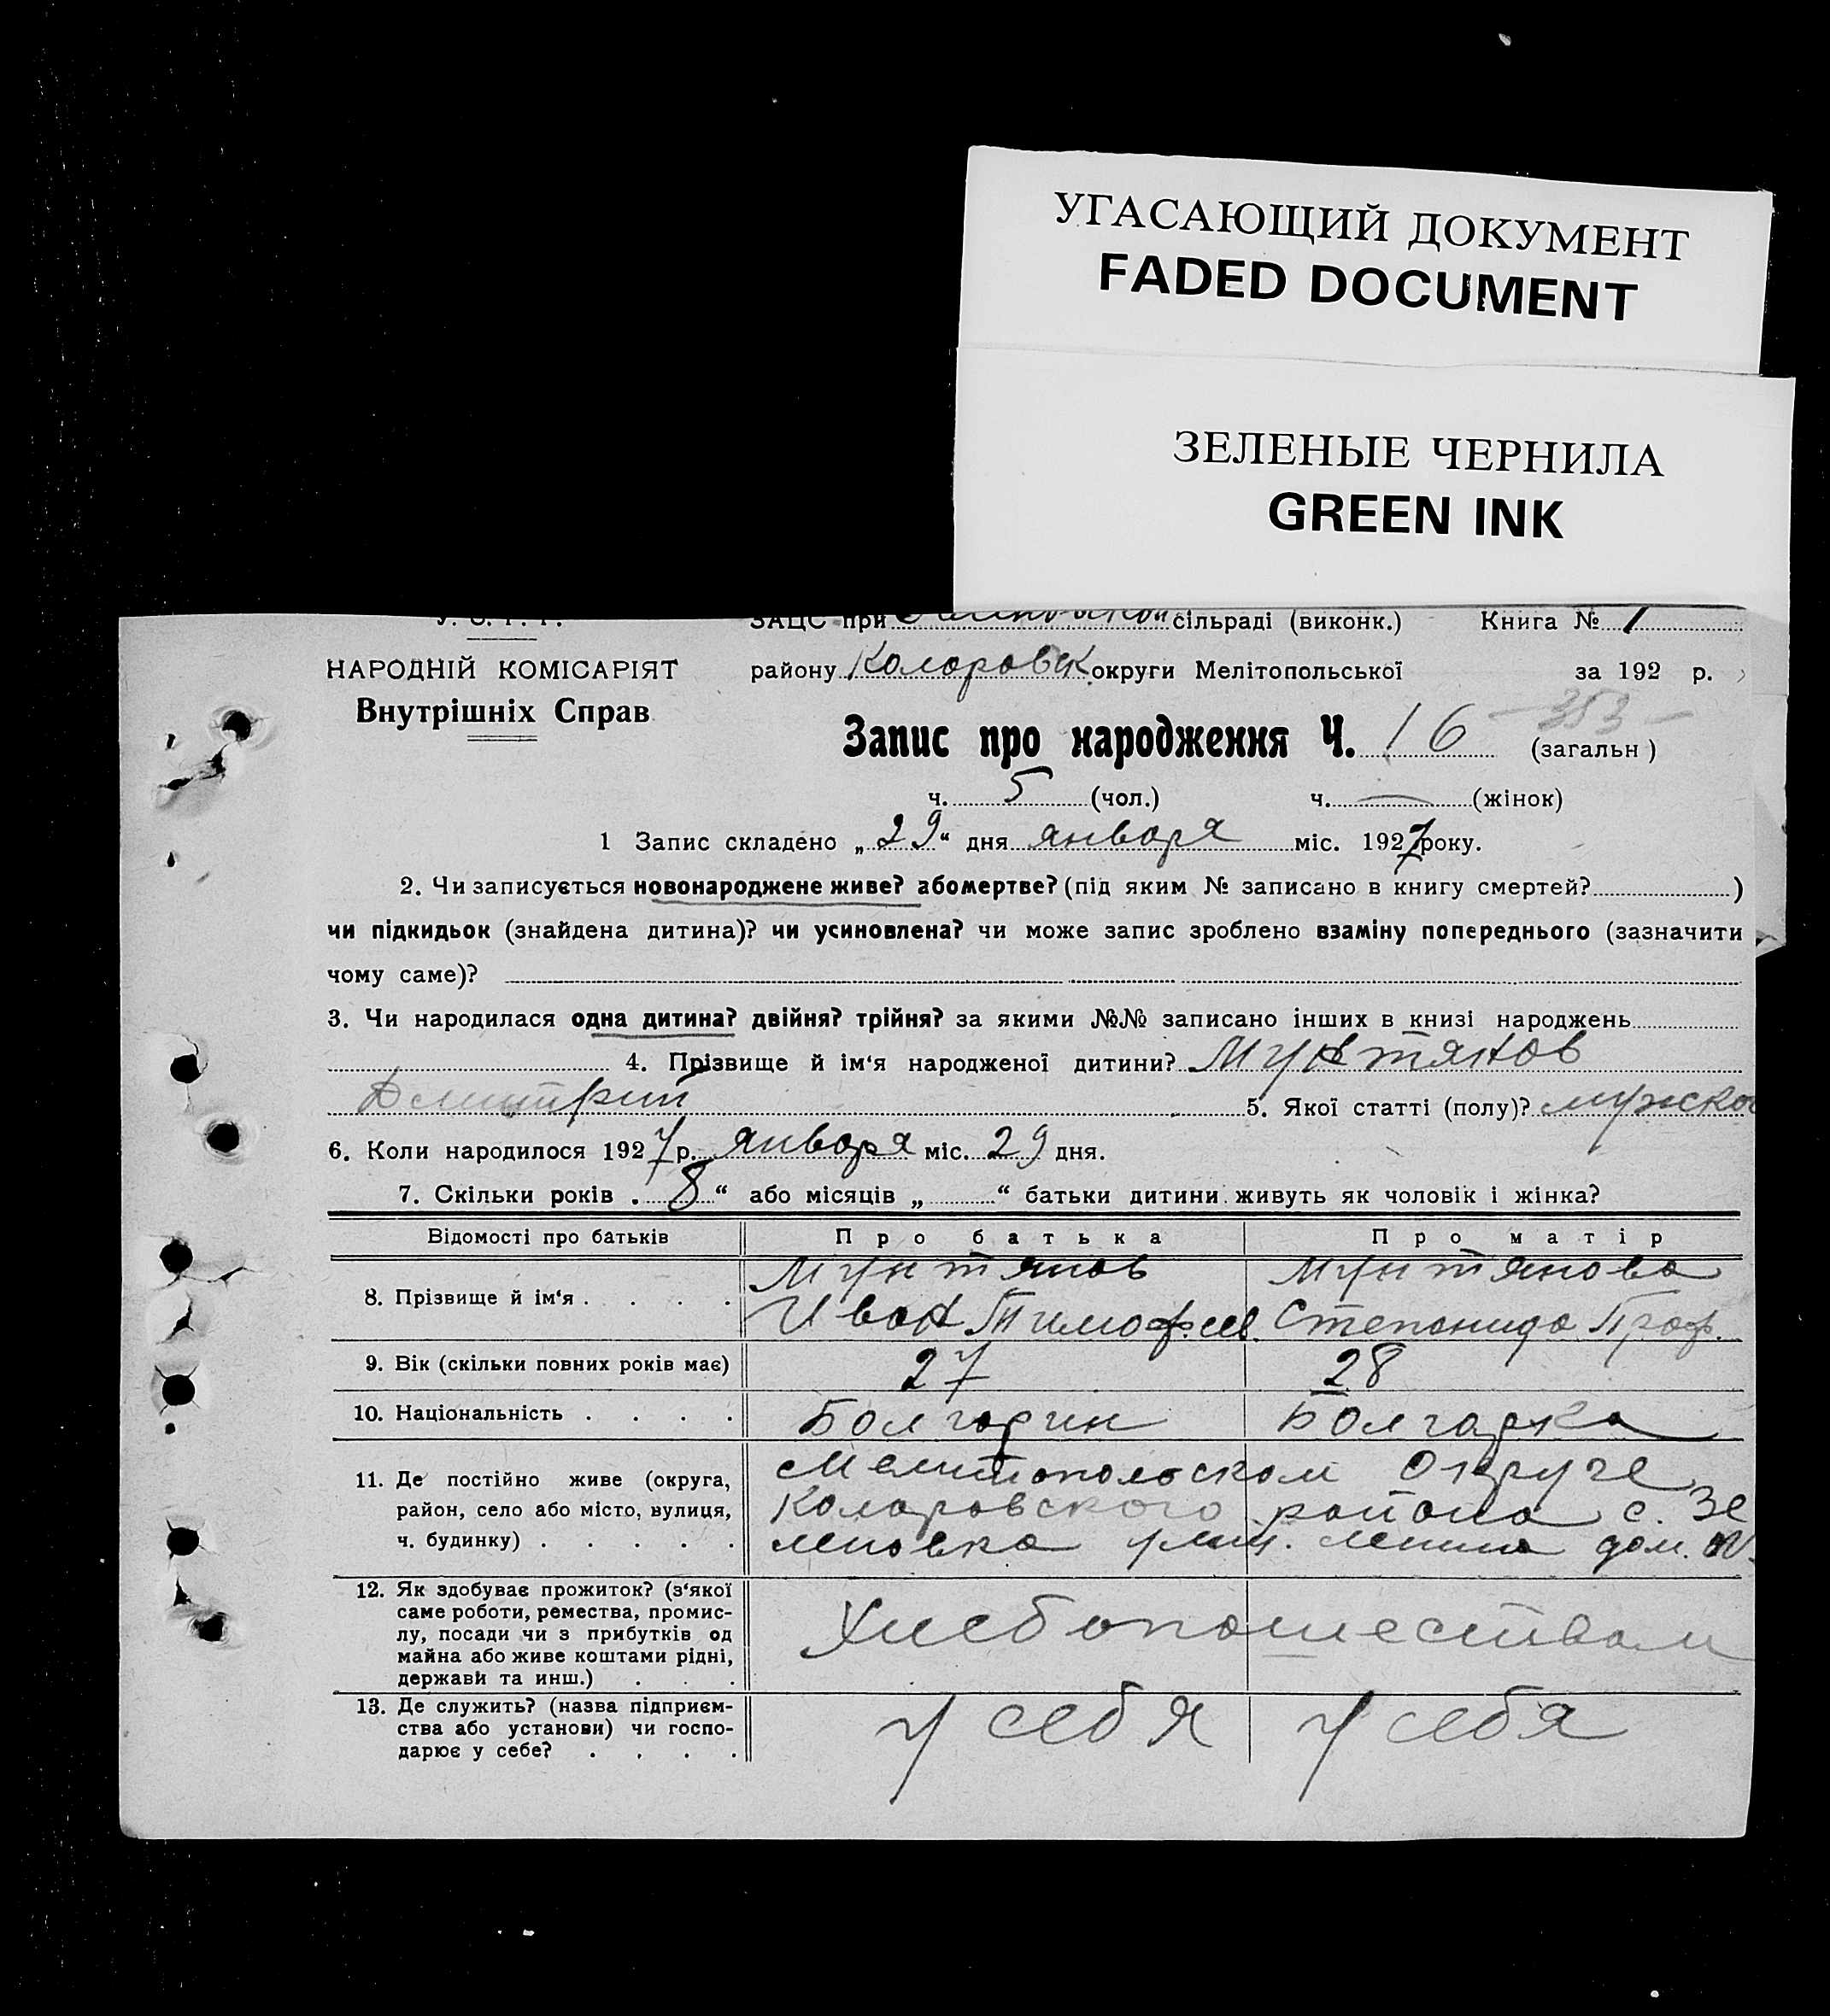 УГАСАЮЩИЙ ДОКУМЕНТ
FADED DOCUMENT
ЗЕЛЕНЫЕ ЧЕРНИЛА
GREEN INK
У. С. Р. Р. ЗАЦС при сільраді (виконк.) Книга № 1
НАРОДНІЙ КОМІСАРІЯТ району Коларовск округи Мелітопольської за 192 р.
Внутрішніх Справ
Запис про народження Ч. 16 — 353 — (загальн )
ч. 5 (чол.) ч. — (жінок)
1 Запис складено „ 29 “ дня января міс. 1927 року.
2. Чи записується новонароджене живе? або мертве? (під яким № записано в книгу смертей? )
чи підкидьок (знайдена дитина)? чи усиновлена? чи може запис зроблено взаміну попереднього (зазначити
чому саме)?
3. Чи народилася одна дитина? двійня? трійня? за якими №№ записано інших в книзі народжень
4. Прізвище й ім‘я народженої дитини? Мунтянов
Дмитрий 5. Якої статті (полу)? мужско
6. Коли народилося 1927 р. января міс. 29 дня.
7. Скільки років „ 8 “ або місяців „ “ батьки дитини живуть як чоловік і жінка?
Відомості про батьків Про батька Про матір
8. Прізвище й ім‘я . . . . Мунтянов Мунтянова
Иван Тимофеев. Степанида Проф.
9. Вік (скільки повних років має) 27 28
10. Національність . . . . Болгарин Болгарка
11. Де постійно живе (округа, район, село або місто, вулиця, ч. будинку) . . . . . Мелитопольском Округе
Коларовского района с. Зе
леновка улиц. Ленина дом. №
12. Як здобуває прожиток? (з‘якої саме роботи, ремества, промислу, посади чи з прибутків од майна або живе коштами рідні, держави та инш.) . . . Хлебопашеством
13. Де служить? (назва підприємства або установи) чи господарює у себе? . . . . у себя у себя